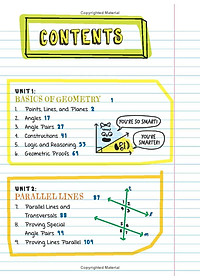 Copyrighted Material
CONTENTS
UNIT 1:
BASICS OF GEOMETRY 1
1. Points, Lines, and Planes 2
2. Angles 17
3. Angle Pairs 27
4. Constructions 41
5. Logic and Reasoning 53
6. Geometric Proofs 69
YOU'RE SO SMART!
YOU'RE SMARTER!
UNIT 2:
PARALLEL LINES 87
7. Parallel Lines and
Transversals 88
8. Proving Special
Angle Pairs 99
9. Proving Lines Parallel 109
Copyrighted Material